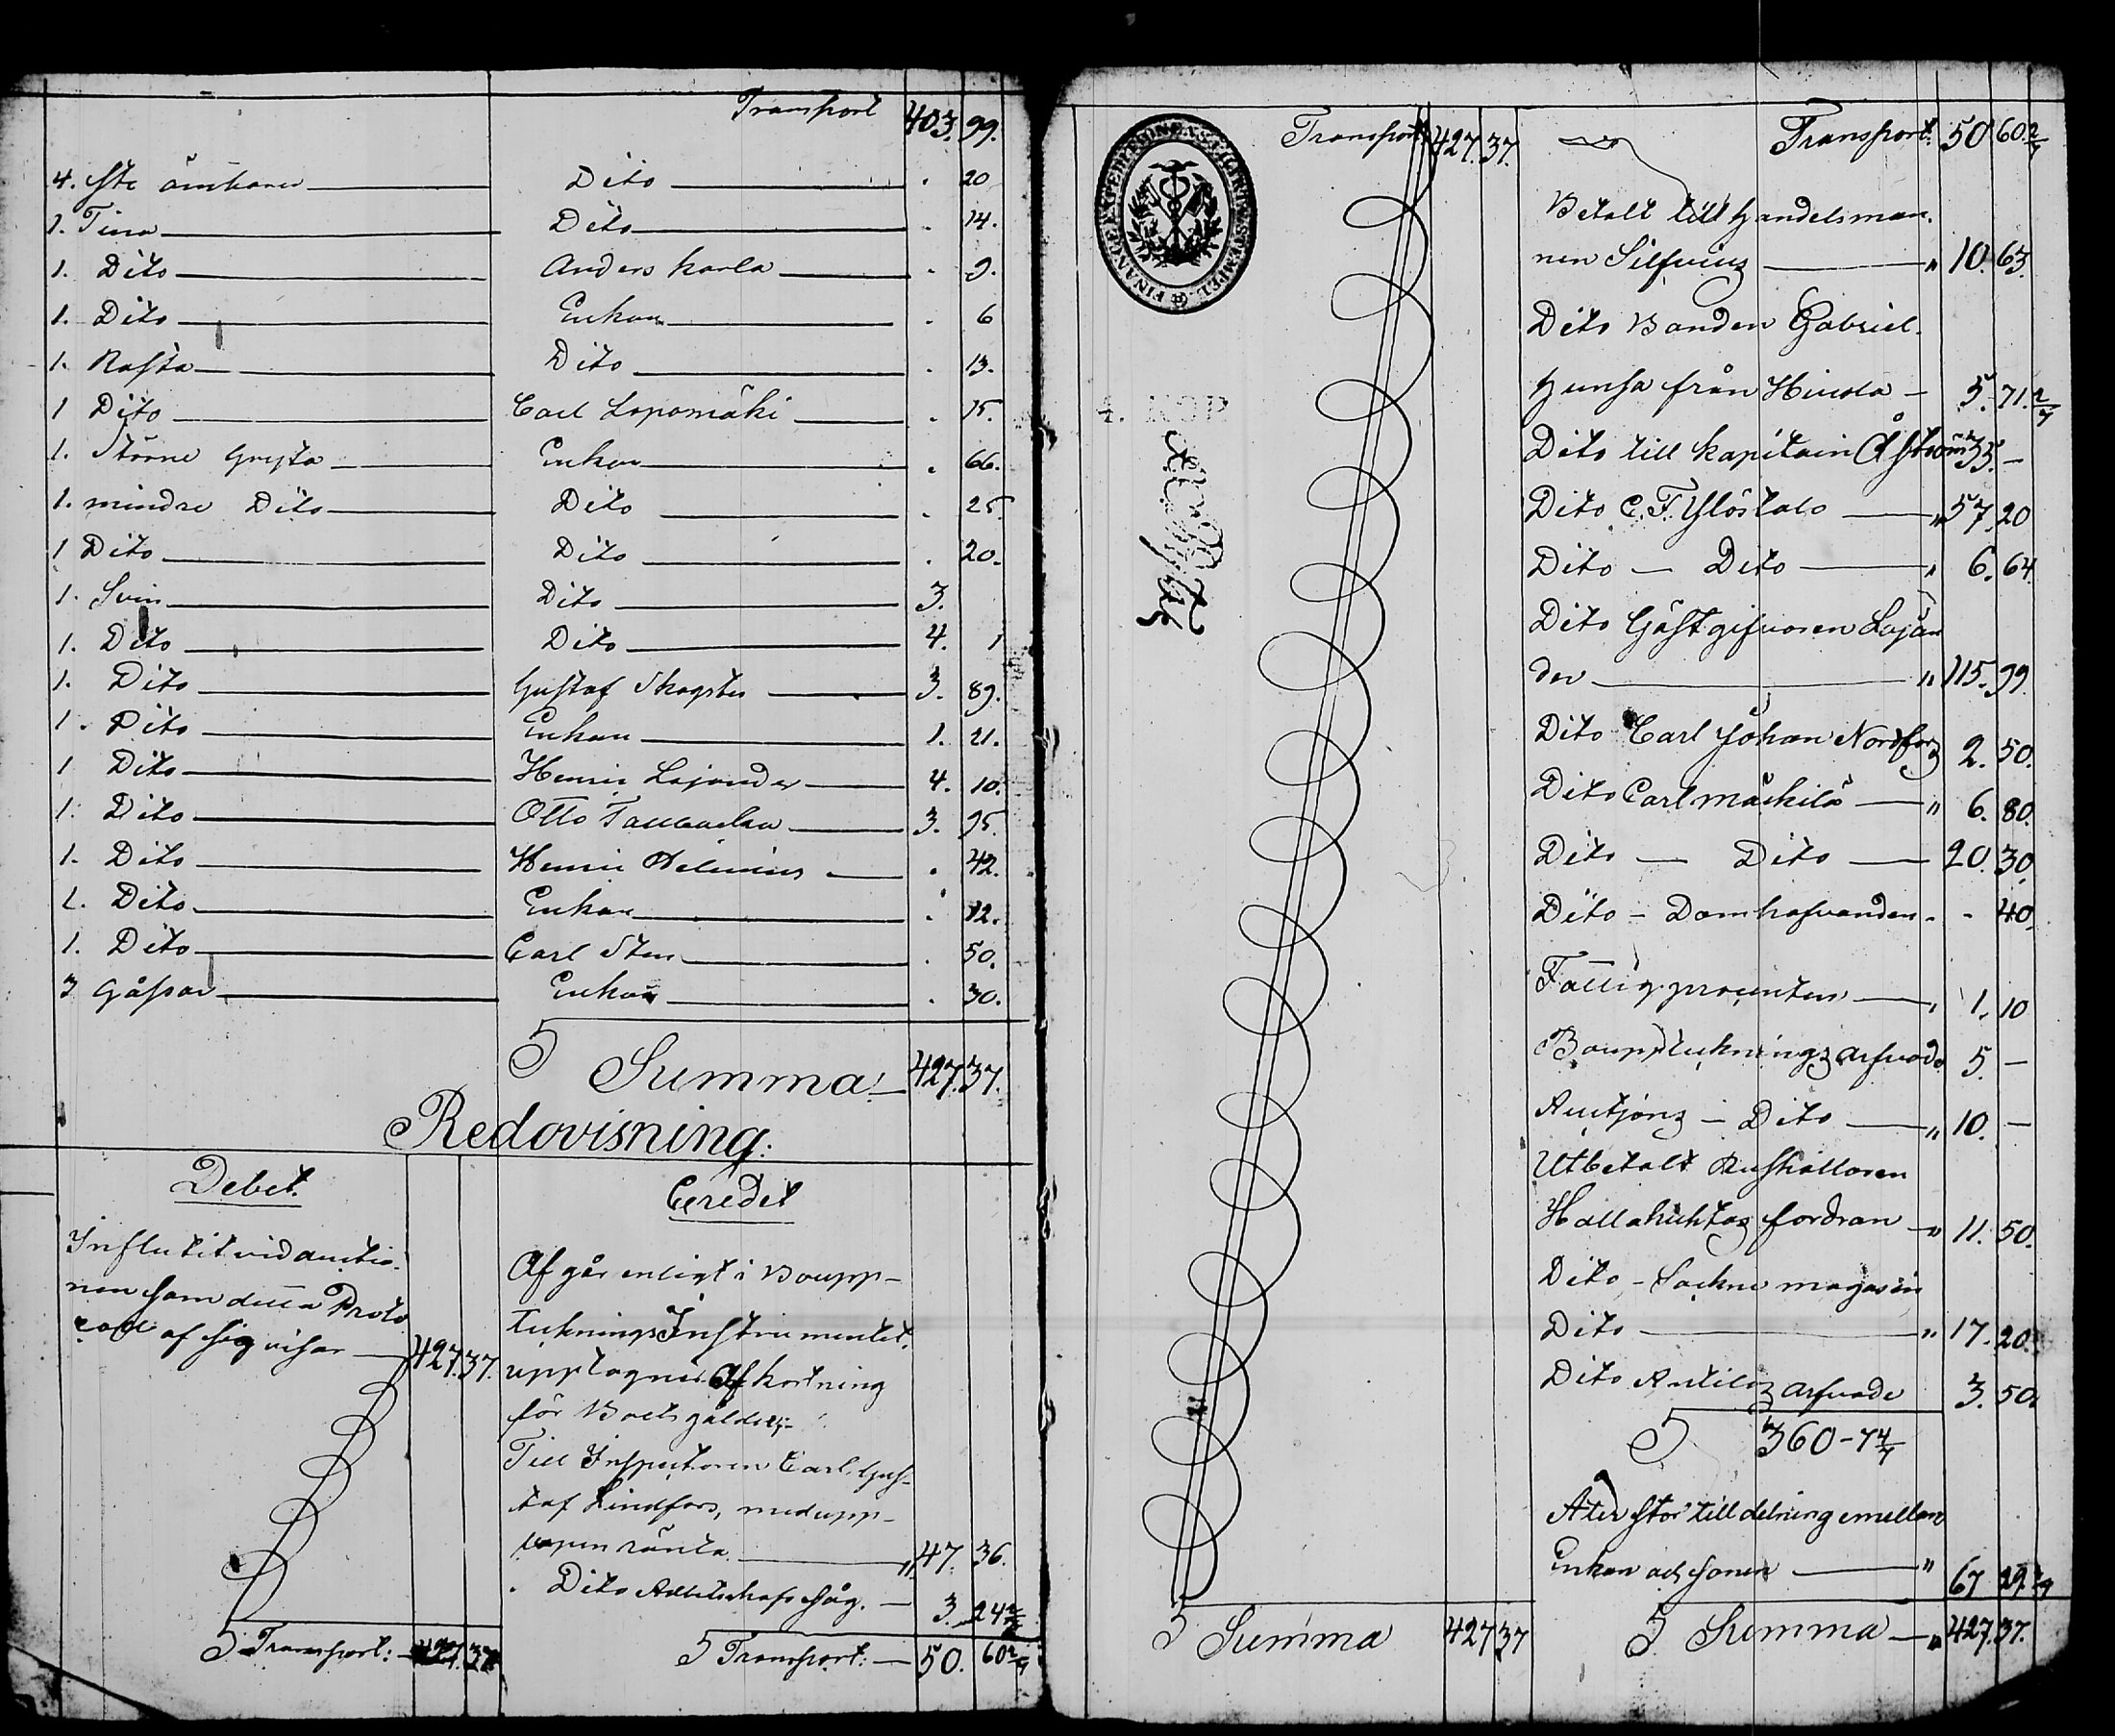 Transport 403. 99.
4. ämbaren Dito . 20
1. Tina Dito . 14.
1. Dito Anders Karla . 9.
1. Dito Enkan . 6
1. Dito . 13.
1 Dito Carl Lopomäki . 15.
1. Större Gryta Enkan . 66.
1. mindre Dito Dito . 25.
1 Dito Dito . 20.
1. Svin Dito 3.
1. Dito Dito 4. 1
1. Dito Gustaf Skogster 3. 89.
1. Dito Enkan 1. 21.
1 Dito Henric Lojander 4. 10.
1. Dito Otto 3. 95.
1. Dito Henric . 42.
1. Dito Enkan . 12.
1. Dito Carl Sten . 50.
3 Gåssar Enkan . 30.
Summa 427. 37.
Redovisning:
Debet.
Influtit vid auctio-
nen som detta Proto
coll af sig visar 427. 37.
Transport: 427. 37.
Credit
Afgår enligt i Boupp-
teknings Instrumentet
upptagne Afkortning
för Boets gälder:
Till Inspectoren Carl Gus-
taf Lindfors, med upp-
lupen ränta " 47. 36.
Dito 3. 24 2/7
Transport: 50. 60 2/7
FINANCE EXPEDITIONENS CHARTÆ STEMPEL
4. KOP
Transport 427. 37.
Summa 427 37
Transport: 50 60 2/7
Betalt till Handelsman-
nen Silfvius " 10. 63.
Dito Bonden Gabriel
Hunsa från Hirvola 5. 71. 2/7
Dito till Kapitain Åström 35. —
Dito C. F. Ylöstalo " 57. 20
Dito — Dito " 6. 64
Dito Gästgifvaren Lojan
der " 115. 99
Dito Carl Johan Nordfors 2. 50.
Dito Carl Mäkilä " 6. 80.
Dito — Dito 20. 30.
Dito — Domhafvanden - 40.
Fattig procenten 1. 10
Bouppteknings arfvode 5. —
Auctjons — Dito " 10. —
Utbetalt Rusthållaren
Hallakuktas fordran " 11. 50.
Dito — Sockne magasin
Dito " 17. 20.
Dito Antilas arfvode 3. 50.
360 - 7 4/7
Återstår till delning emellan
Enkan och sonen " 67 29 3/7
Summa " 427. 37.